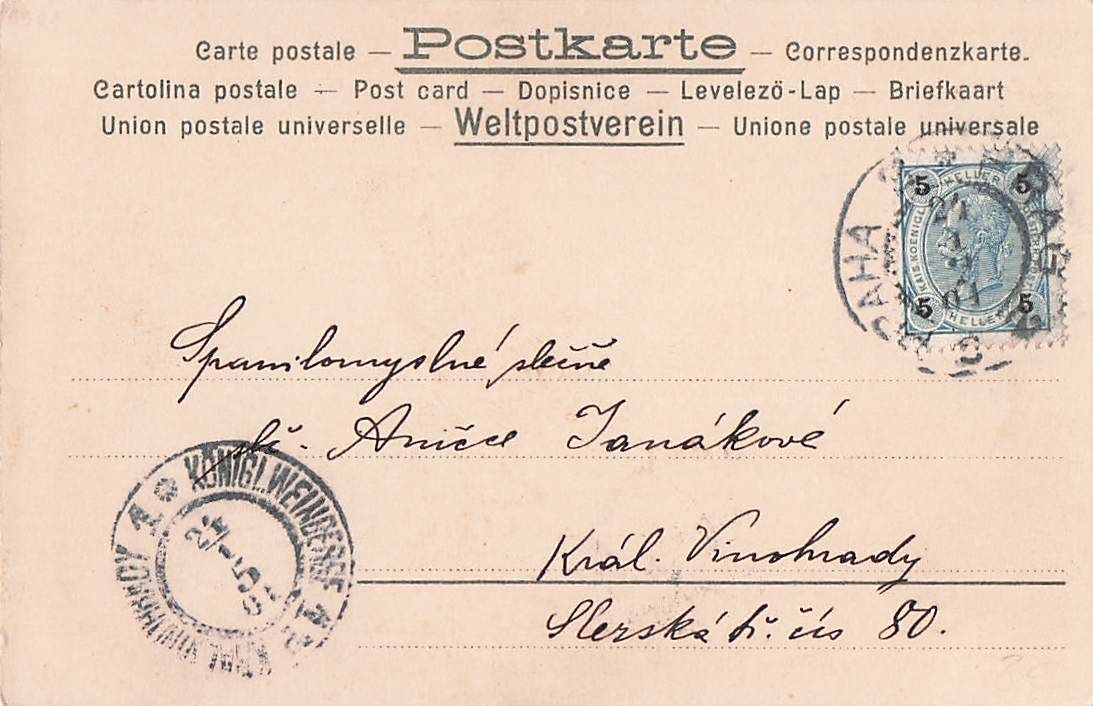 Carte postale — Postkarte — Correspondenzkarte.
Cartolina postale — Post card — Dopisnice — Levelező-Lap — Briefkaart
Union postale universelle — Weltpostverein — Unione postale universale
5 HELLER 5
5 HELLER 5
PRAHA
Spanilomyslné slečně
sl. Aničce Janákové
KÖNIGL. WEINBERGE 1
KRÁL. VINOHRADY 1
24
Král. Vinohrady
tř. čís 80.